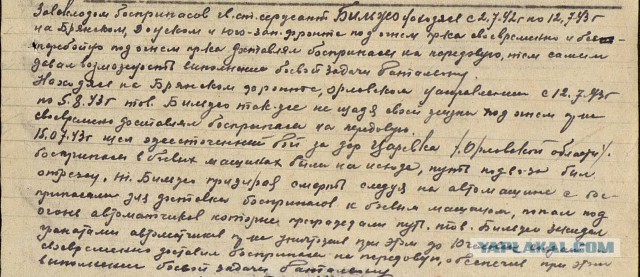 Завскладом боеприпасов гв. ст. сержант Билмез находясь с 2.7.42г по 12.7.43г
на Брянском, Донском и Юго-Зап. фронте под огнем пр-ка своевременно и бес-
перебойно под огнем пр-ка доставлял боеприпасы на передовую, тем самым
давая возможность выполнению боевой задачи батальону.
Находясь на Брянском фронте, Орловском направлении с 12.7.43г
по 5.8.43г тов. так-же не щадя своей жизни под огнем
своевременно доставлял боеприпасы на передовую.
15.07.43г шел ожесточенный бой за дер Царевка /Орловской области/.
боеприпасы в боевых машинах были на исходе, путь подвоза был
отрезан, презирая смерть следуя на автомашине с бое-
припасами для доставки боеприпасов к боевым машинам, попал под
огонь автоматчиков которые преграждали путь. тов.
гранатами автоматчиков уничтожив при этом до 10
своевременно доставил боеприпасы на передовую, обеспечив при этом
выполнение боевой задачи батальону
YAPLAKAL.COM